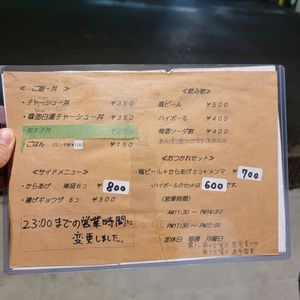 <ご飯・丼>
・チャーシュー丼 ¥350
・醤油白湯チャーシュー丼 ¥350
・明太子丼
・ごはん (ランチ時¥100) ¥150
<サイドメニュー>
・からあげ 単品6コ ¥800
・揚げギョウザ 6コ ¥300
23:00までの営業時間に
変更しました。
<飲み物>
瓶ビール ¥500
ハイボール ¥400
梅酒ソーダ割 ¥400
<おつかれセット>
・瓶ビール+からあげ2コ+メンマ ¥700
・ハイボールのセットは 600 です。
(営業時間)
AM11:30 ~ PM14:30
PM17:30 ~ PM22:00
定休日 毎週 月曜日